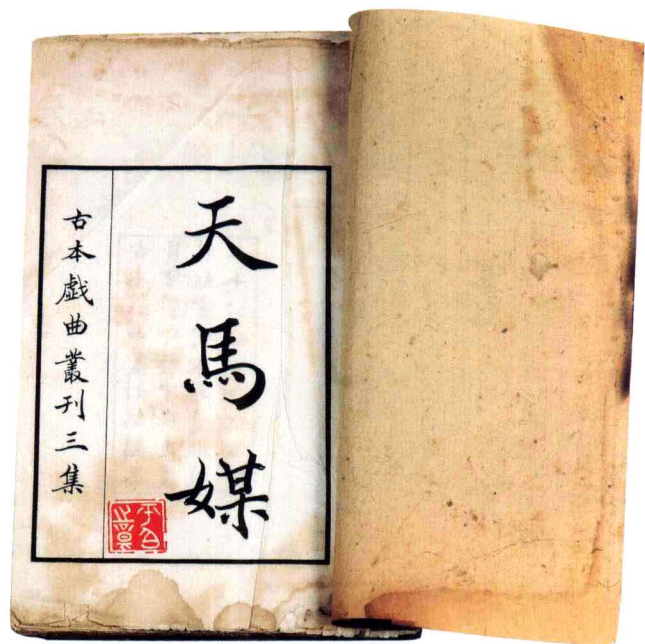 天馬媒
古本戲曲叢刊三集